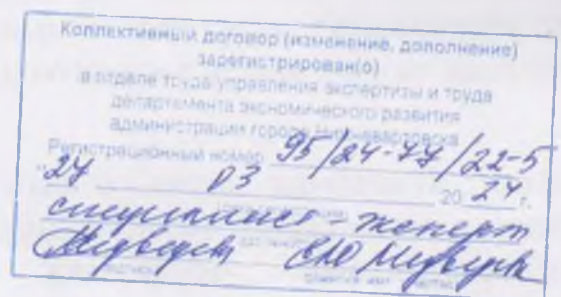 Коллективный договор (изменение, дополнение)
зарегистрирован(о)
в отделе труда управления экспертизы и труда
департамента экономического развития
администрации города Нижневартовска
Регистрационный номер 95/24-77/22-5
"24 03 2024 г.
специалист-эксперт